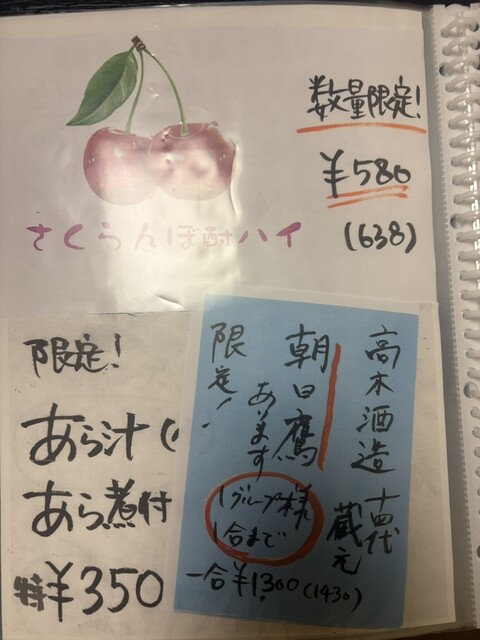 数量限定!
¥580
(638)
さくらんぼ酎ハイ
限定!
あら汁(
あら煮付
特¥350
高木酒造
十四代
蔵元
朝日鷹
あります
限定!
1グループ様
1合まで
一合¥1300(1430)